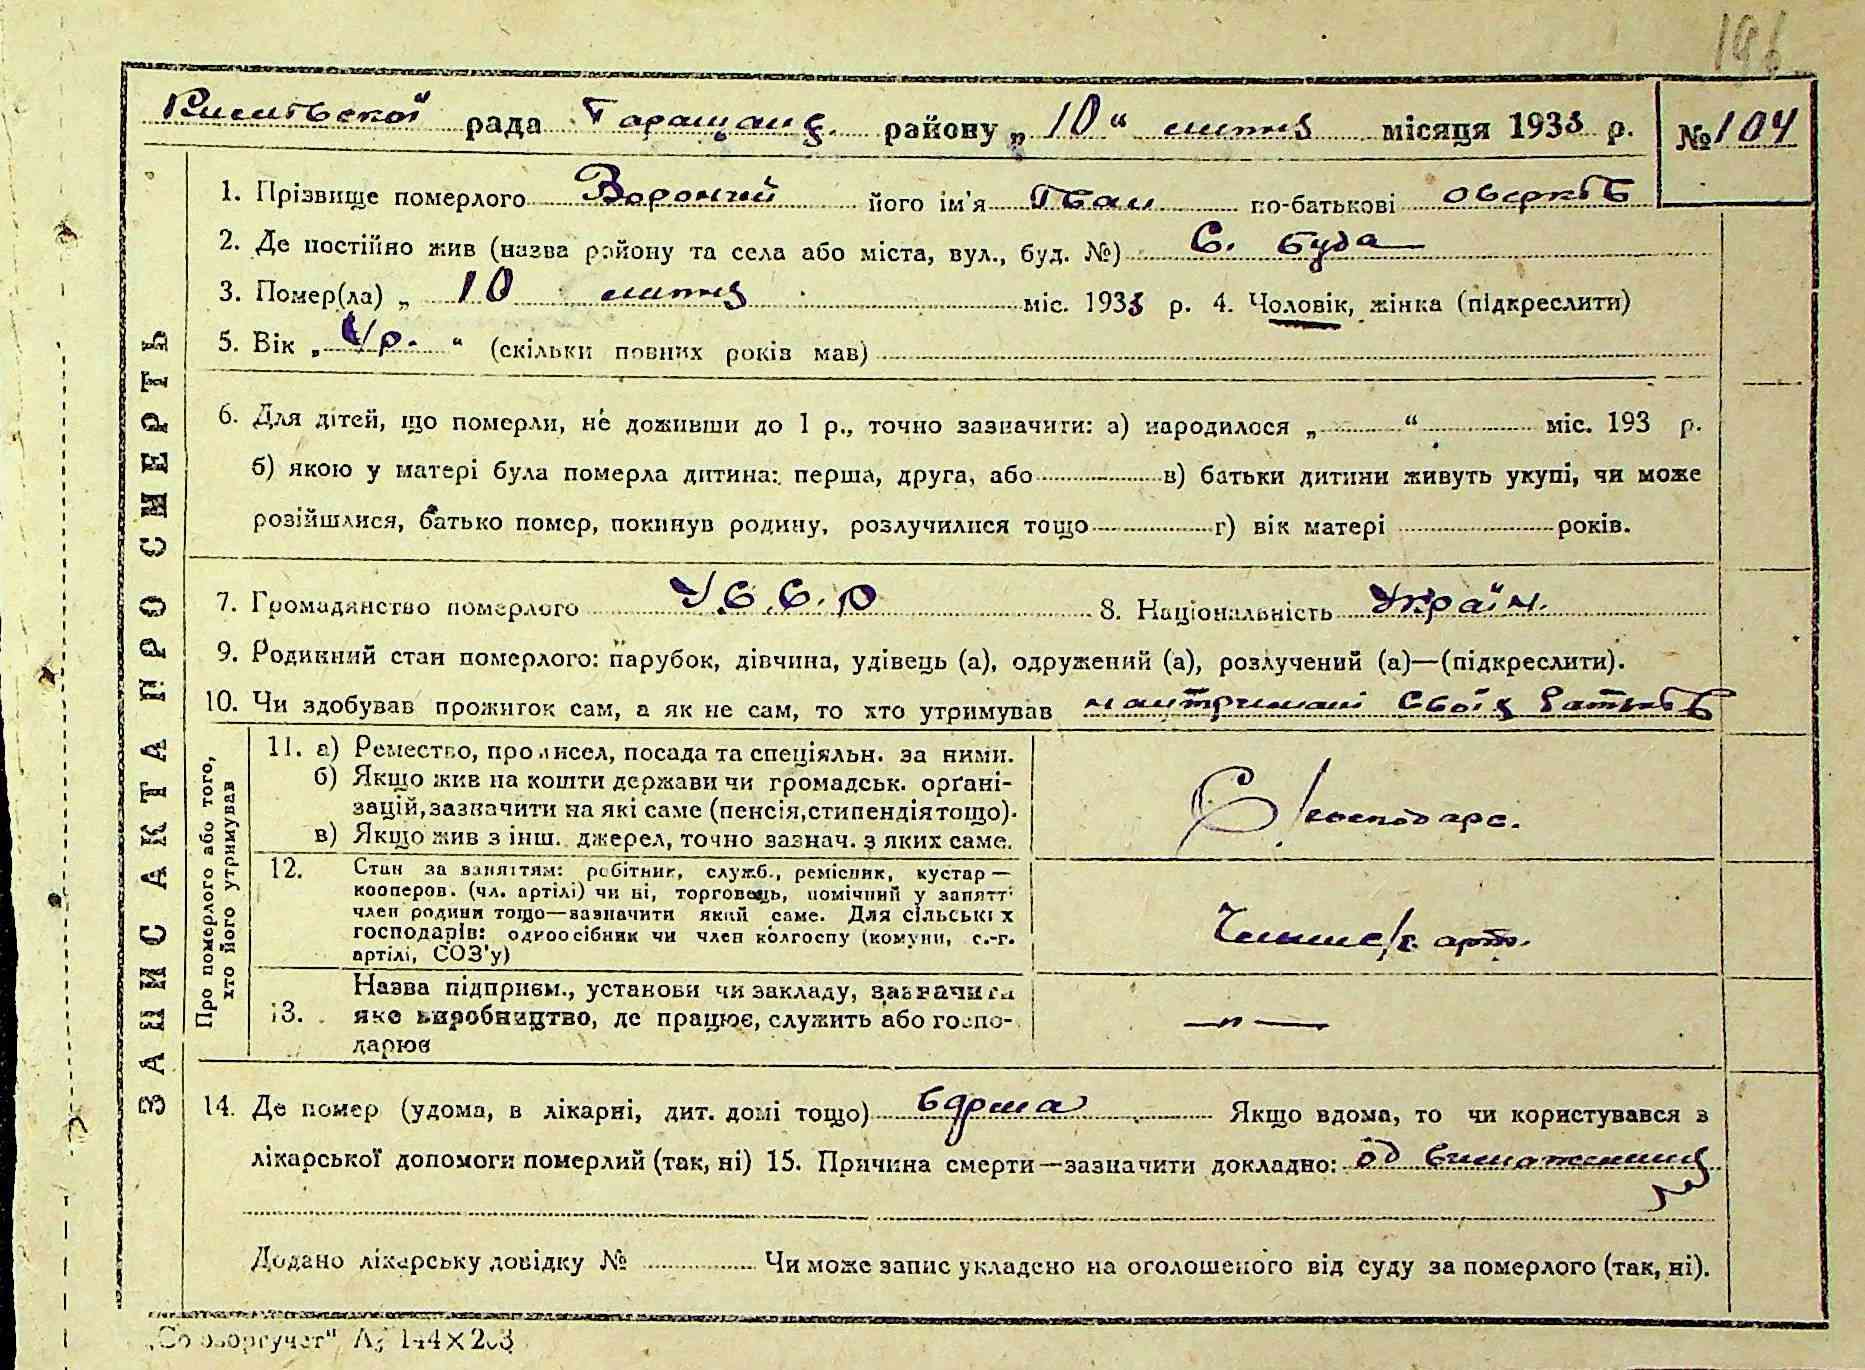 196
рада Таращанс. району „ 10 “ лютня місяця 1933 р. № 104
ЗАПИС АКТА ПРО СМЕРТЬ
1. Прізвище померлого Вороний його ім'я Іван по-батькові Оверків
2. Де постійно жив (назва району та села або міста, вул., буд. №) С. Буда
3. Помер(ла) „ 10 лютня міс. 1933 р. 4. Чоловік, жінка (підкреслити)
5. Вік „ р. “ (скільки повних років мав)
6. Для дітей, що померли, не доживши до 1 р., точно зазначити: а) народилося „ “ міс. 193 р.
б) якою у матері була померла дитина: перша, друга, або в) батьки дитини живуть укупі, чи може
розійшлися, батько помер, покинув родину, розлучилися тощо г) вік матері років.
7. Громадянство померлого У.С.С.Р 8. Національність Україн.
9. Родинний стан померлого: парубок, дівчина, удівець (а), одружений (а), розлучений (а)—(підкреслити).
10. Чи здобував прожиток сам, а як не сам, то хто утримував на утримані своїх батьків
Про померлого або того,
хто його утримував
11. а) Ремество, промисел, посада та спеціяльн. за ними.
б) Якщо жив на кошти держави чи громадськ. орґані-
зацій, зазначити на які саме (пенсія, стипендія тощо).
в) Якщо жив з інш. джерел, точно зазнач. з яких саме.
С/господарс.
12. Стан за заняттям: робітник, служб., ремісник, кустар —
кооперов. (чл. артілі) чи ні, торговець, помічний у занятт
член родини тощо—зазначити який саме. Для сільських
господарів: одноосібник чи член колгоспу (комуни, с.-г.
артілі, СОЗ'у)
Член с/г. арт.
13. Назва підприєм., установи чи закладу, зазначити
яке виробництво, де працює, служить або госпо-
дарює
—„—
14. Де помер (удома, в лікарні, дит. домі тощо) вдома Якщо вдома, то чи користувався з
лікарської допомоги померлий (так, ні) 15. Причина смерти—зазначити докладно: од виснаження
Додано лікарську довідку № Чи може запис укладено на оголошеного від суду за померлого (так, ні).
„Союзоргучет“